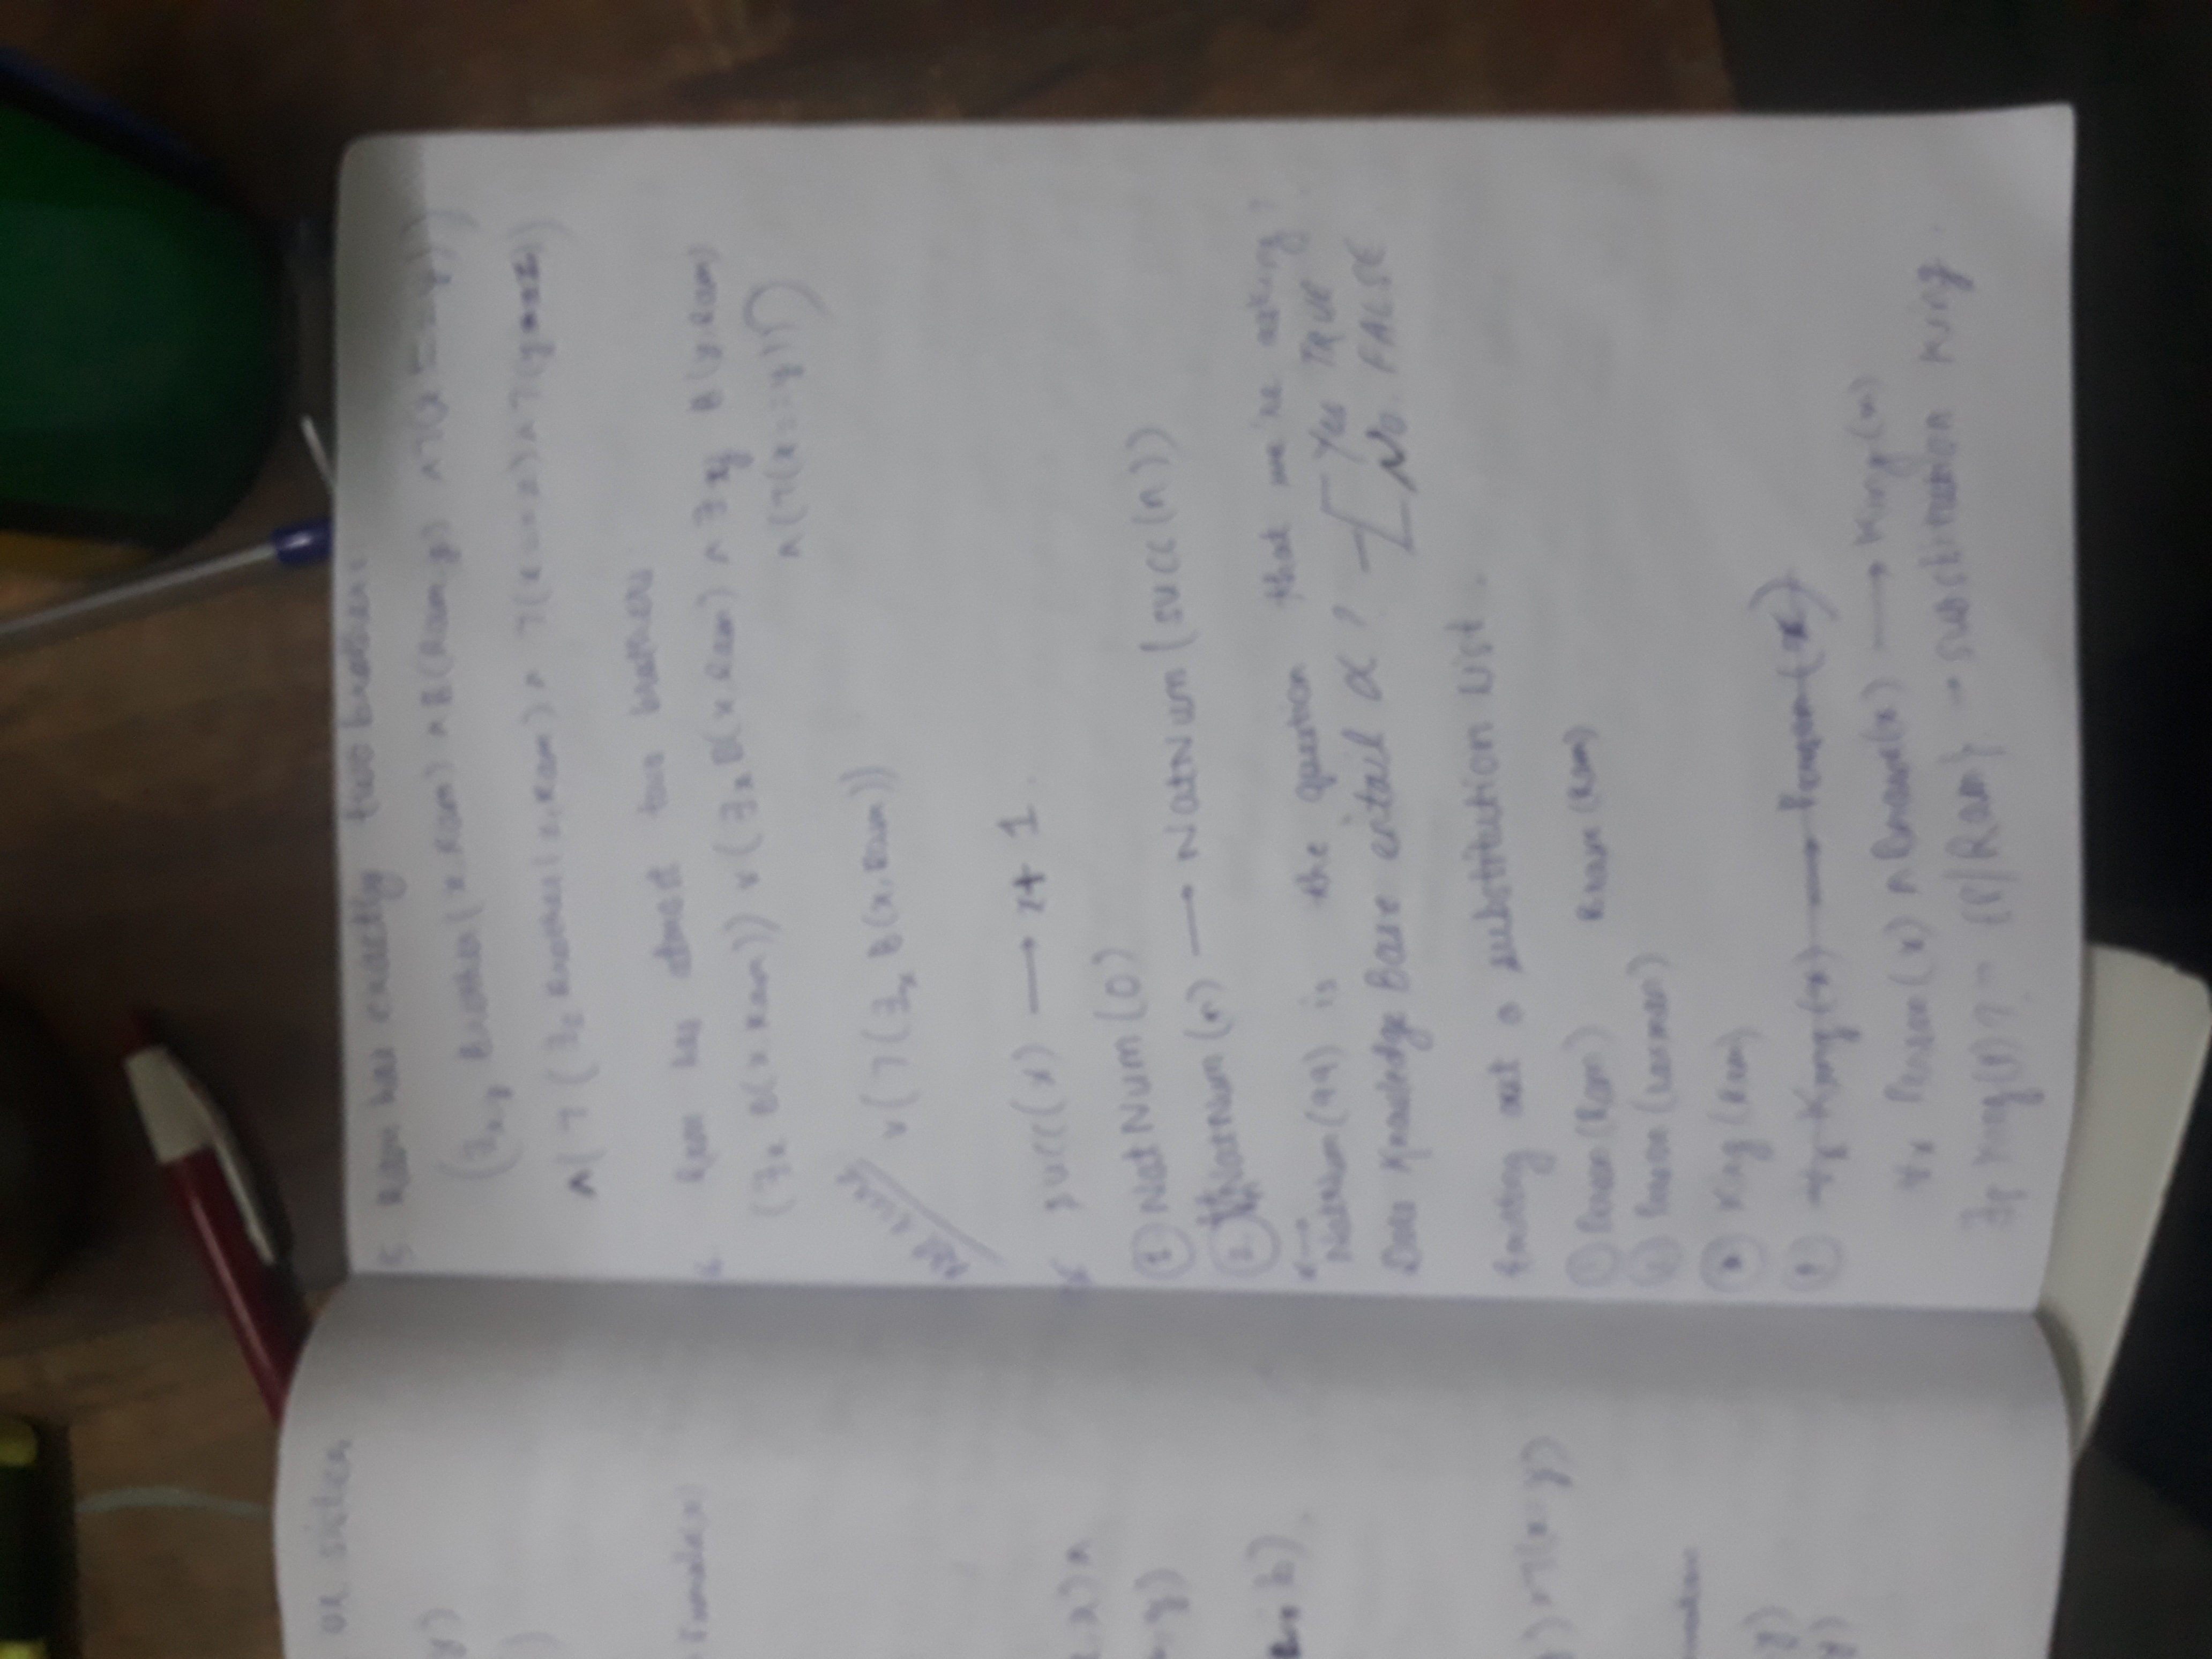 or sister
y)
)
Female(x)
, x) ∧
= y)
= z)
) ∧ ¬(x = y)
y)
y)
5. Ram has exactly two brothers
(∃x,y Brother(x, Ram) ∧ B(Ram, y) ∧ ¬(x == y))
∧ (¬(∃z Brother(z, Ram) ∧ ¬(x == z) ∧ ¬(y == z)
6. Ram has atmost two brothers
(∃x B(x Ram)) ∨ (∃x B(x, Ram) ∧ ∃y B(y, Ram)
∧ (¬(x == y)))
∨ (¬(∃x B(x, Ram))
succ(x) → x + 1.
① NatNum(0)
② NatNum(n) → NatNum(succ(n))
NatNum(99) is the question that we're asking,
Does Knowledge Base entail α? Yes TRUE
No. FALSE
finding out a substitution list.
① Person(Ram) Brave(Ram)
② Person(Laxman)
③ King(Ram)
④ ∀x King(x) → Person(x)
∀x Person(x) ∧ Brave(x) → King(x)
∃p King(p)? - {P/Ram} → substitution